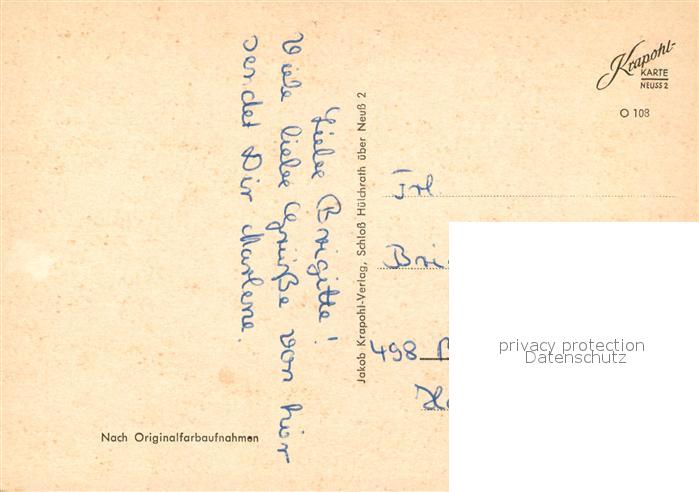 Liebe Brigitte!
Viele liebe Grüße von hier
sendet Dir Marlene.
Nach Originalfarbaufnahmen
Jakob Krapohl-Verlag, Schloß Hülchrath über Neuß 2
Krapohl-
KARTE
NEUSS 2
O 108
Frl.
Bri
498
privacy protection
Datenschutz